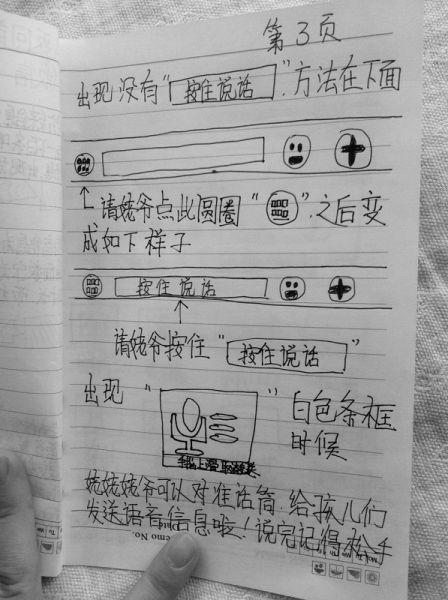 第3页
出现没有"按住说话".方法在下面
请姥爷点此圆圈" ".之后变
成如下样子
按住说话
请姥爷按住"按住说话"
出现" "白色条框
时候
姥姥姥爷可以对准话筒.给孩儿们
发送语音信息啦!说完记得松手
emo No.